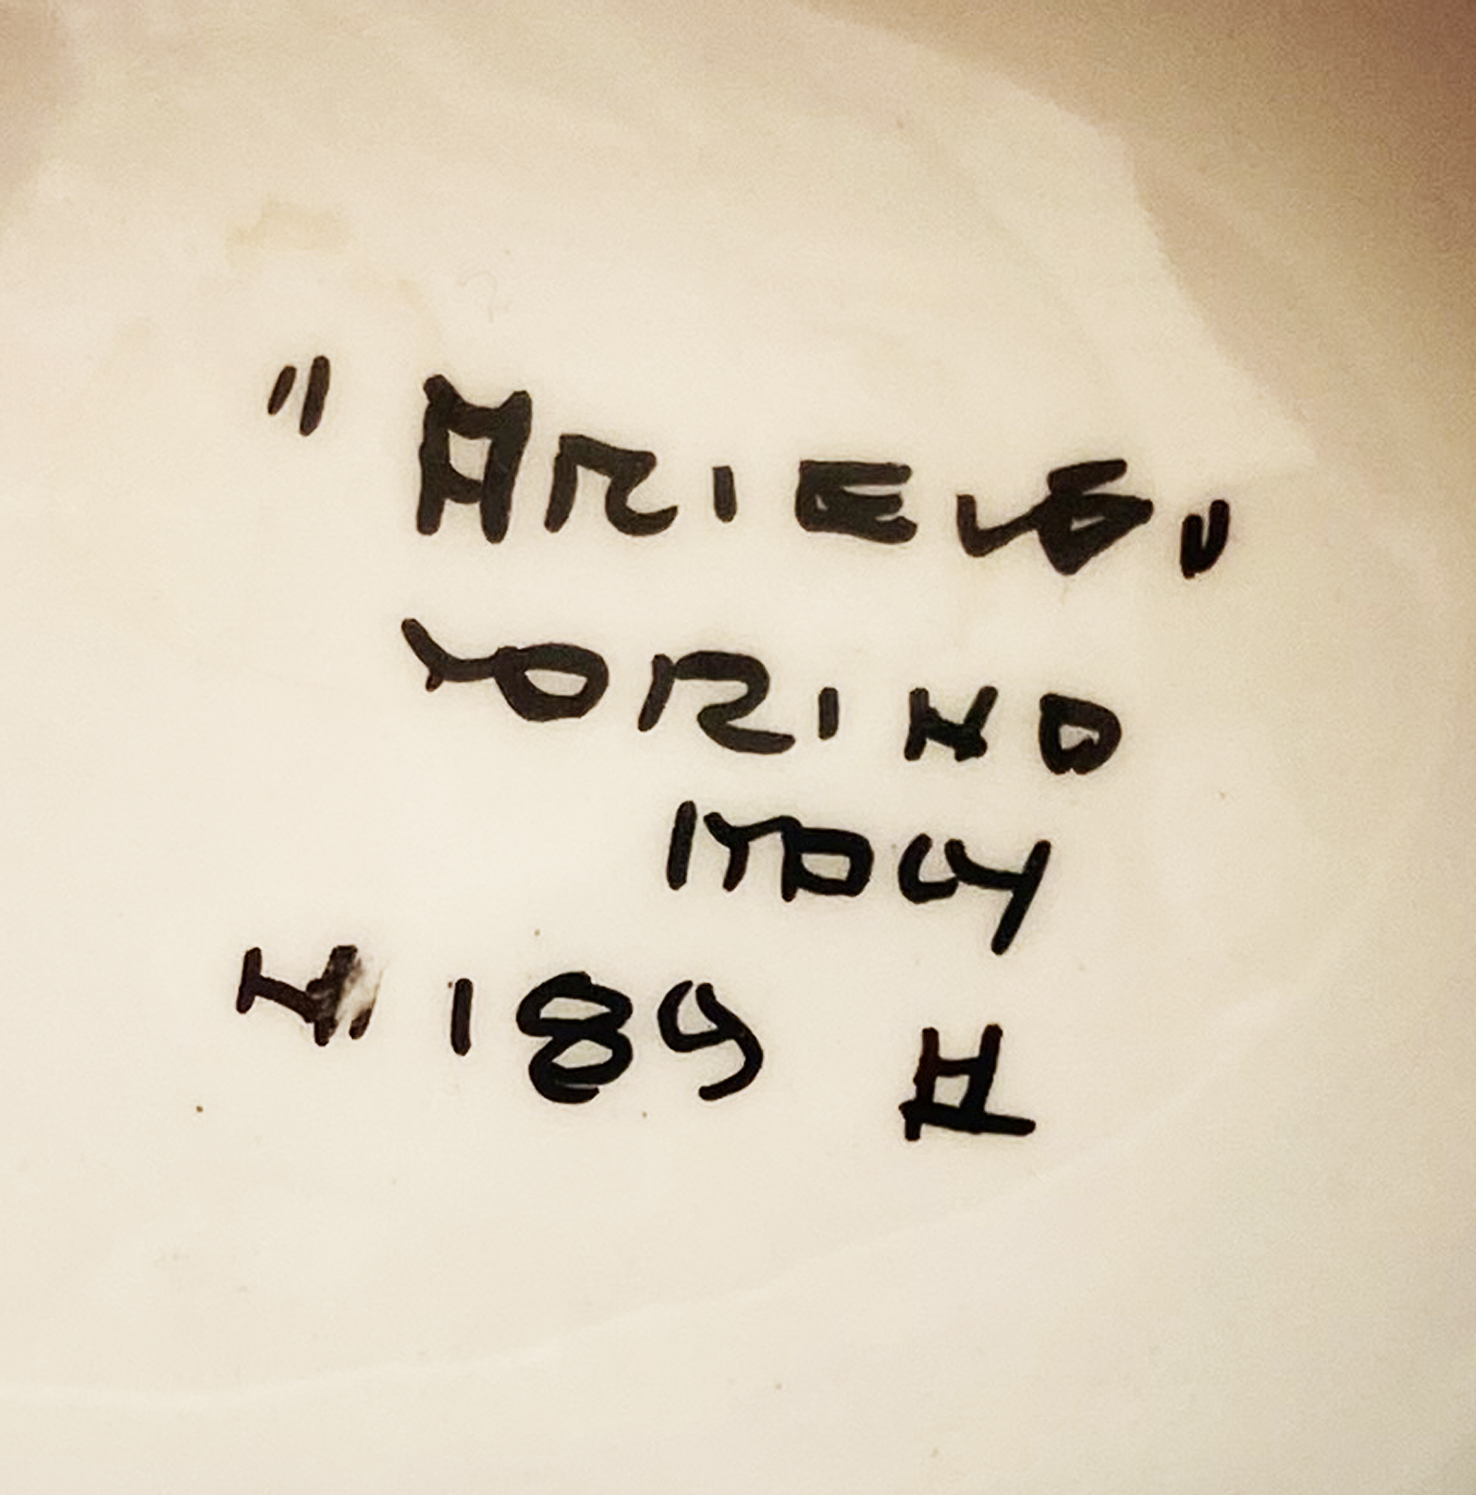 "ARIELE"
TORINO
ITALY
N. 189 A